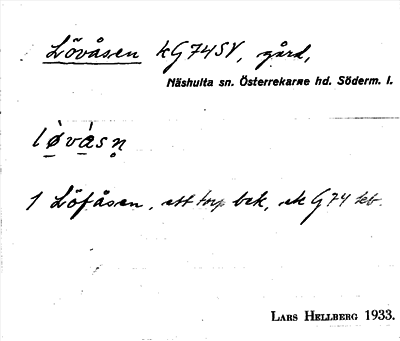 Lövåsen kG74SV, gård,
Näshulta sn. Österrekarne hd. Söderm. l.
lø̀vàsn̥
1 Löfåsen, ett torp bek, ek G 74 
LARS HELLBERG 1933.